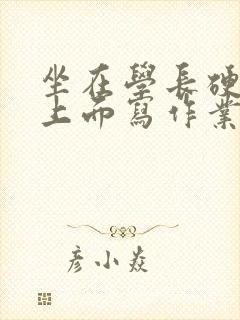 坐在學長硬
上而寫作業
彥小焱